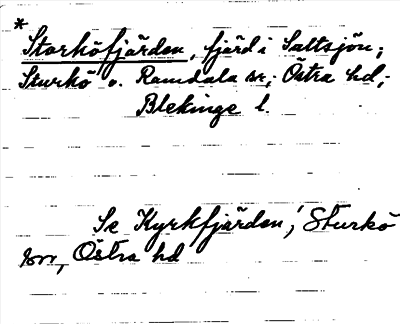 *
Storköfjärden, fjärd i Saltsjön;
Sturkö o. Ramdala sn; Östra hd;
Blekinge l.
Se Kyrkfjärden, Sturkö
sn, Östra hd